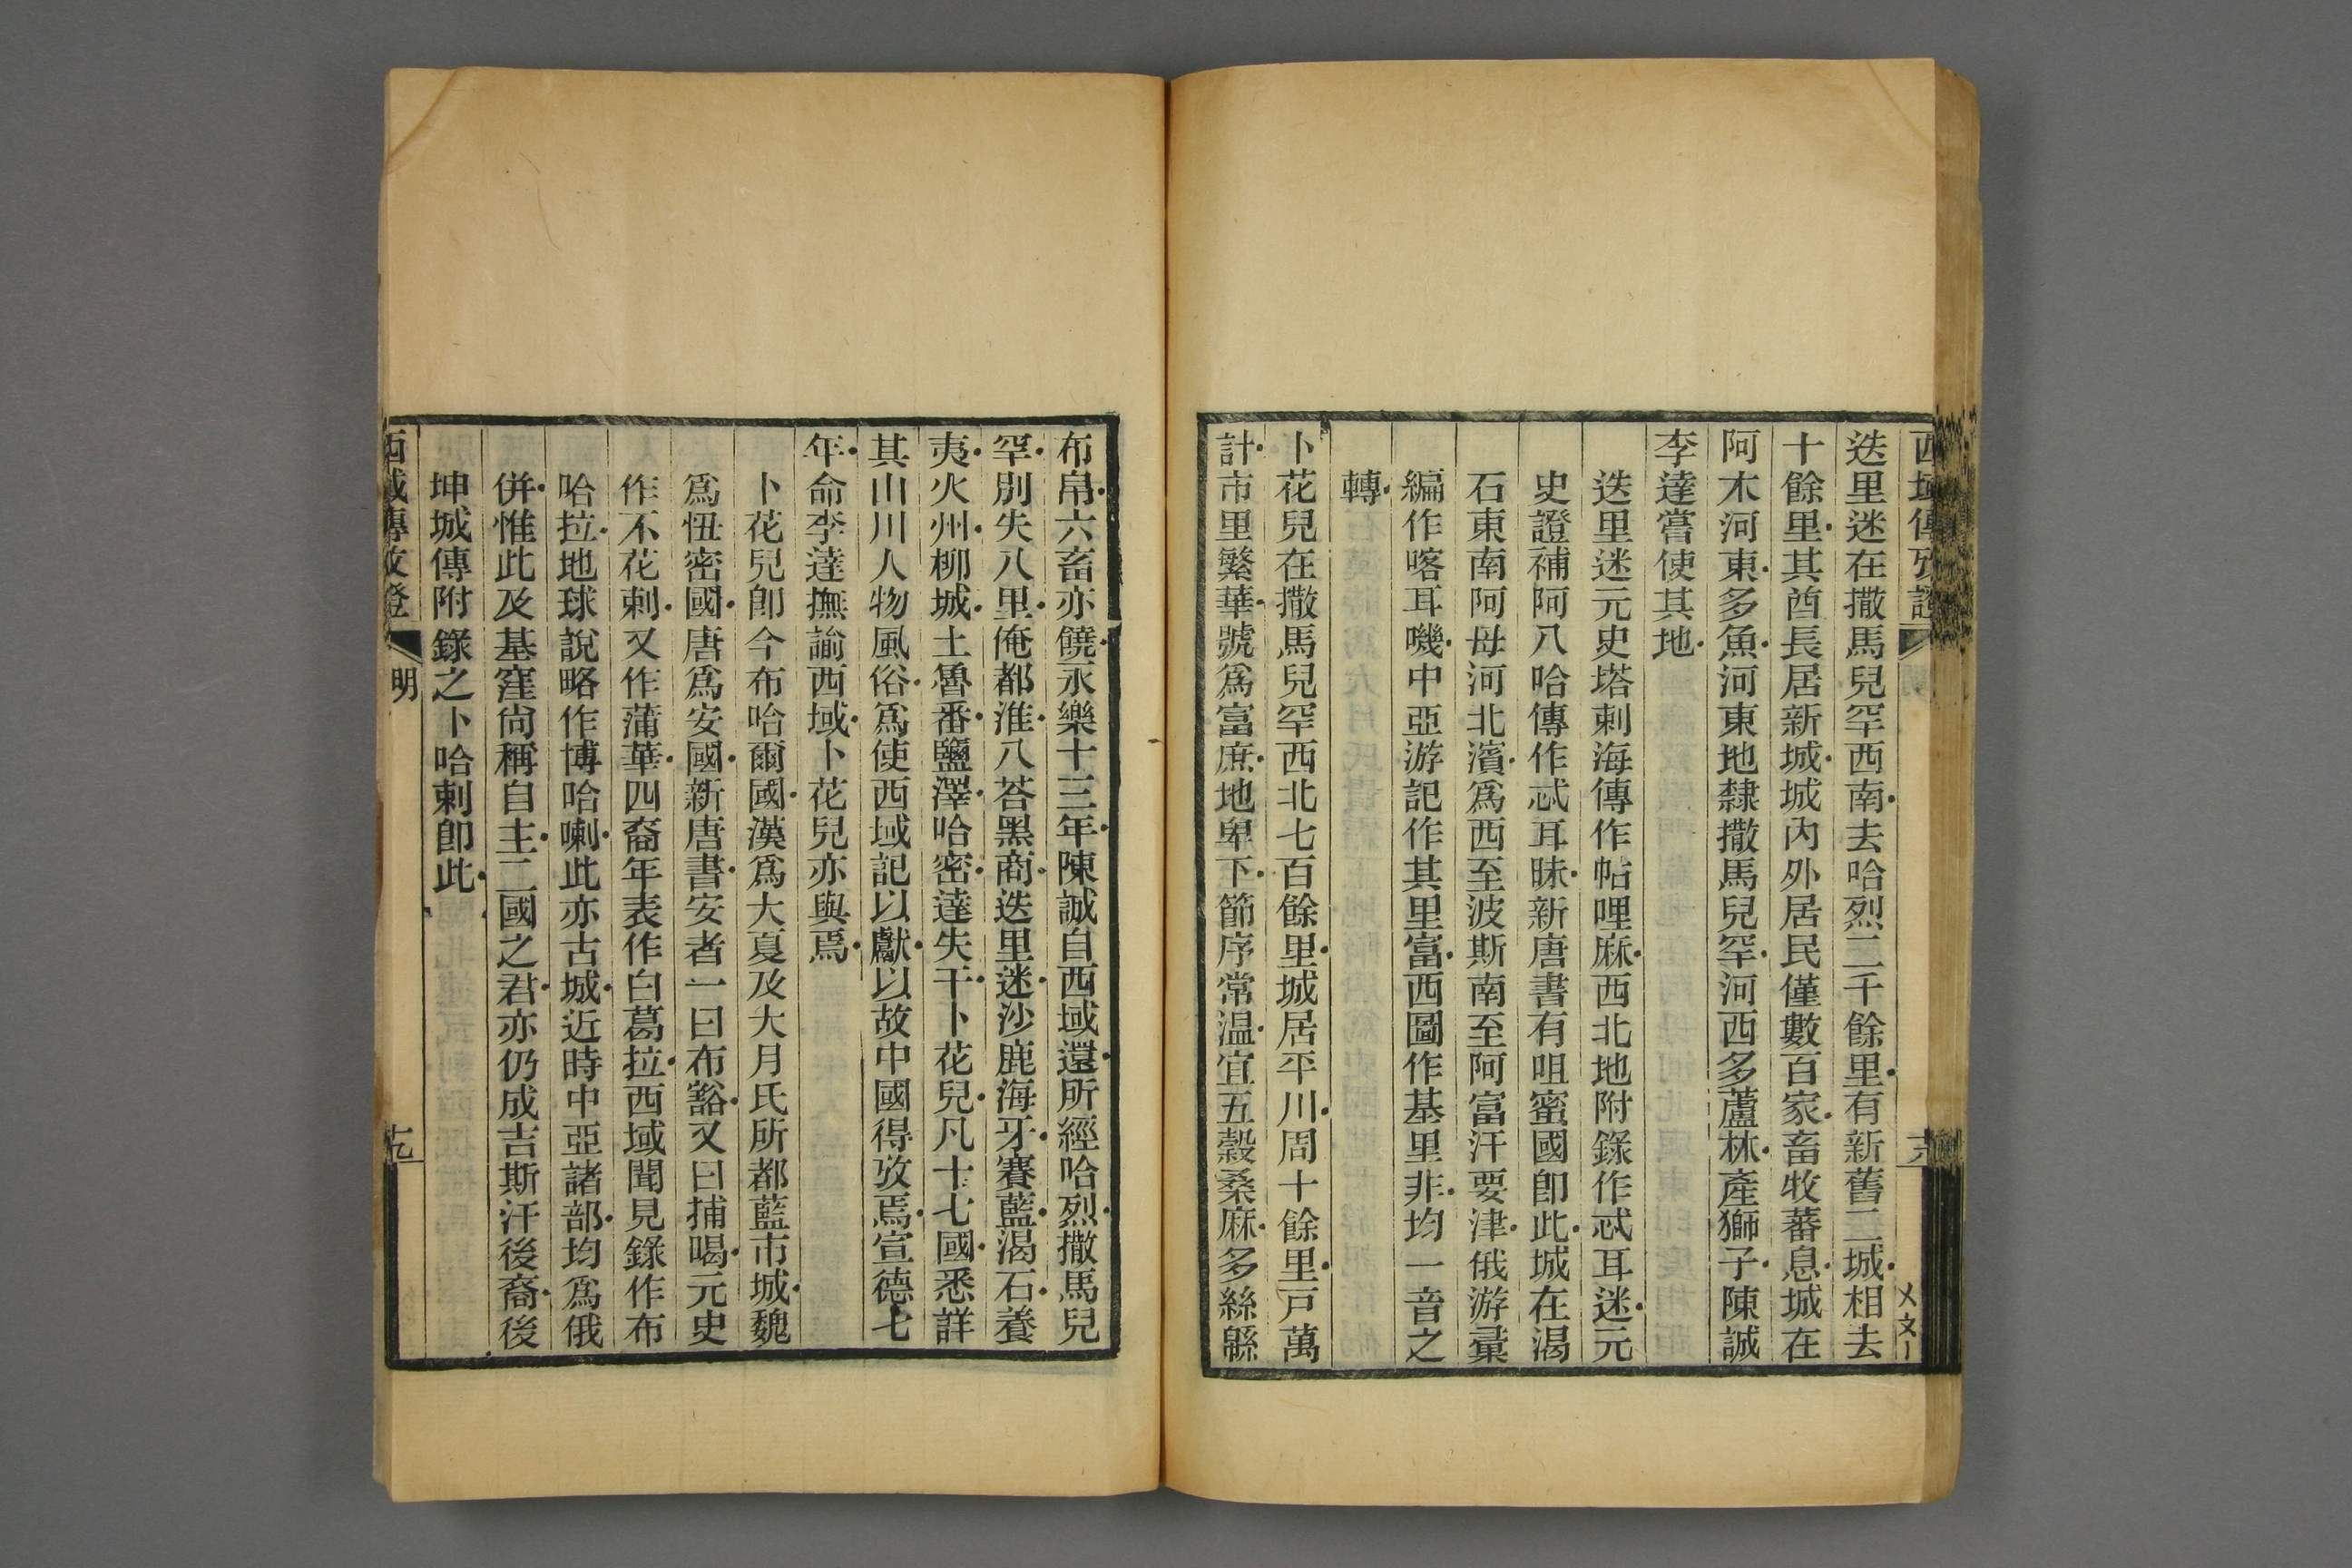 迭里迷在撒馬兒罕西南去哈烈二千餘里有新舊二城相去
十餘里其酋長居新城城內外居民僅數百家畜牧蕃息城在
阿木河東多魚河東地隸撒馬兒罕河西多蘆林產獅子陳誠
李達嘗使其地
迭里迷元史塔剌海傳作帖哩麻西北地附錄作忒耳迷元
史證補阿八哈傳作忒耳昧新唐書有咀蜜國卽此城在渴
石東南阿母河北濱爲西至波斯南至阿富汗要津俄游彙
編作喀耳嘰中亞游記作其里富西圖作基里非均一音之
轉
卜花兒在撒馬兒罕西北七百餘里城居平川周十餘里戸萬
計市里繁華號爲富庶地卑下節序常温宜五穀桑麻多絲緜
布帛六畜亦饒永樂十三年陳誠自西域還所經哈烈撒馬兒
罕別失八里俺都淮八荅黑商迭里迷沙鹿海牙賽藍渴石養
夷火州柳城土魯番鹽澤哈密達失干卜花兒凡十七國悉詳
其山川人物風俗爲使西域記以獻以故中國得攷焉宣德七
年命李達撫諭西域卜花兒亦與焉
卜花兒卽今布哈爾國漢爲大夏及大月氏所都藍市城魏
爲忸密國唐爲安國新唐書安者一曰布豁又曰捕喝元史
作不花剌又作蒲華四裔年表作白葛拉西域聞見錄作布
哈拉地球說略作博哈喇此亦古城近時中亞諸部均爲俄
併惟此及基窪尙稱自主二國之君亦仍成吉斯汗後裔後
坤城傳附錄之卜哈剌卽此
西域傳攷證
明